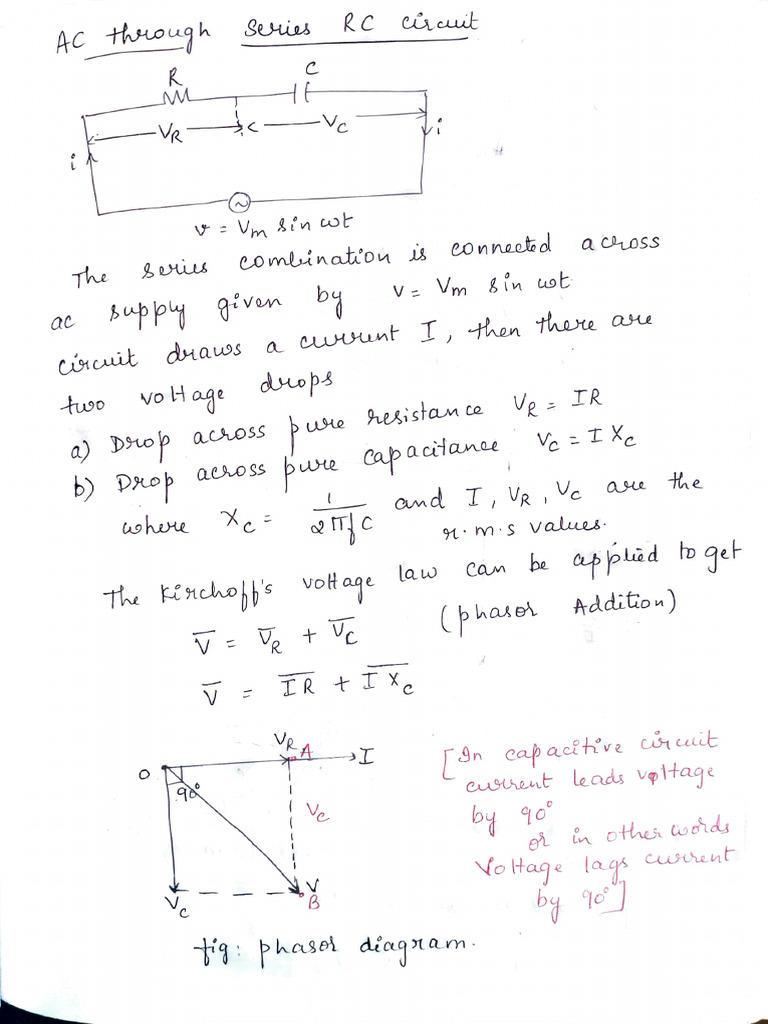 AC through series RC circuit
R
C
VR
VC
i
i
~
v = Vm sin ωt
The series combination is connected across
ac supply given by v = Vm sin ωt
circuit draws a current I, then there are
two voltage drops
a) Drop across pure resistance VR = IR
b) Drop across pure capacitance VC = I XC
where XC = 1/2πfC and I, VR, VC are the
r.m.s values.
The Kirchoff's voltage law can be applied to get
V̅ = V̅R + V̅C (phasor Addition)
V̅ = I̅R̅ + I̅X̅C
VR
A
I
O
90°
VC
V
B
VC
[In capacitive circuit
current leads voltage
by 90°
or in other words
Voltage lags current
by 90°]
fig: phasor diagram.